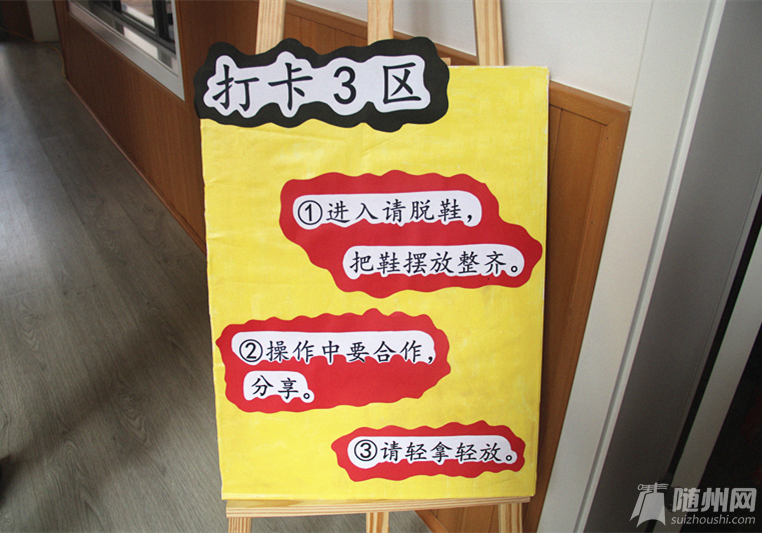 打卡3区
①进入请脱鞋，
把鞋摆放整齐。
②操作中要合作，
分享。
③请轻拿轻放。
随州网
suizhoushi.com